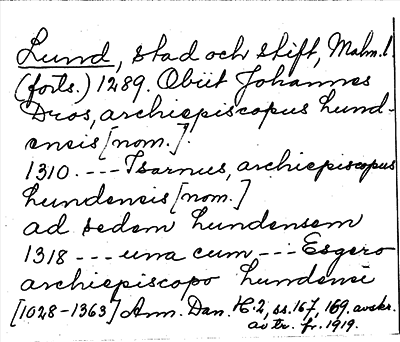 Lund, stad och stift, Malm. l.
(forts.) 1289. Obiit Johannes
Dros, archiepiscopus Lund-
ensis [nom.].
1310. --- Isarnus, archiepiscopus
Lundensis [nom.]
ad sedem Lundensem
1318 --- una cum --- Esgero
archiepiscopo Lundensi
[1028-1363] Ann. Dan. H. 2, ss. 167, 169. avskr.
av tr. fr. 1919.